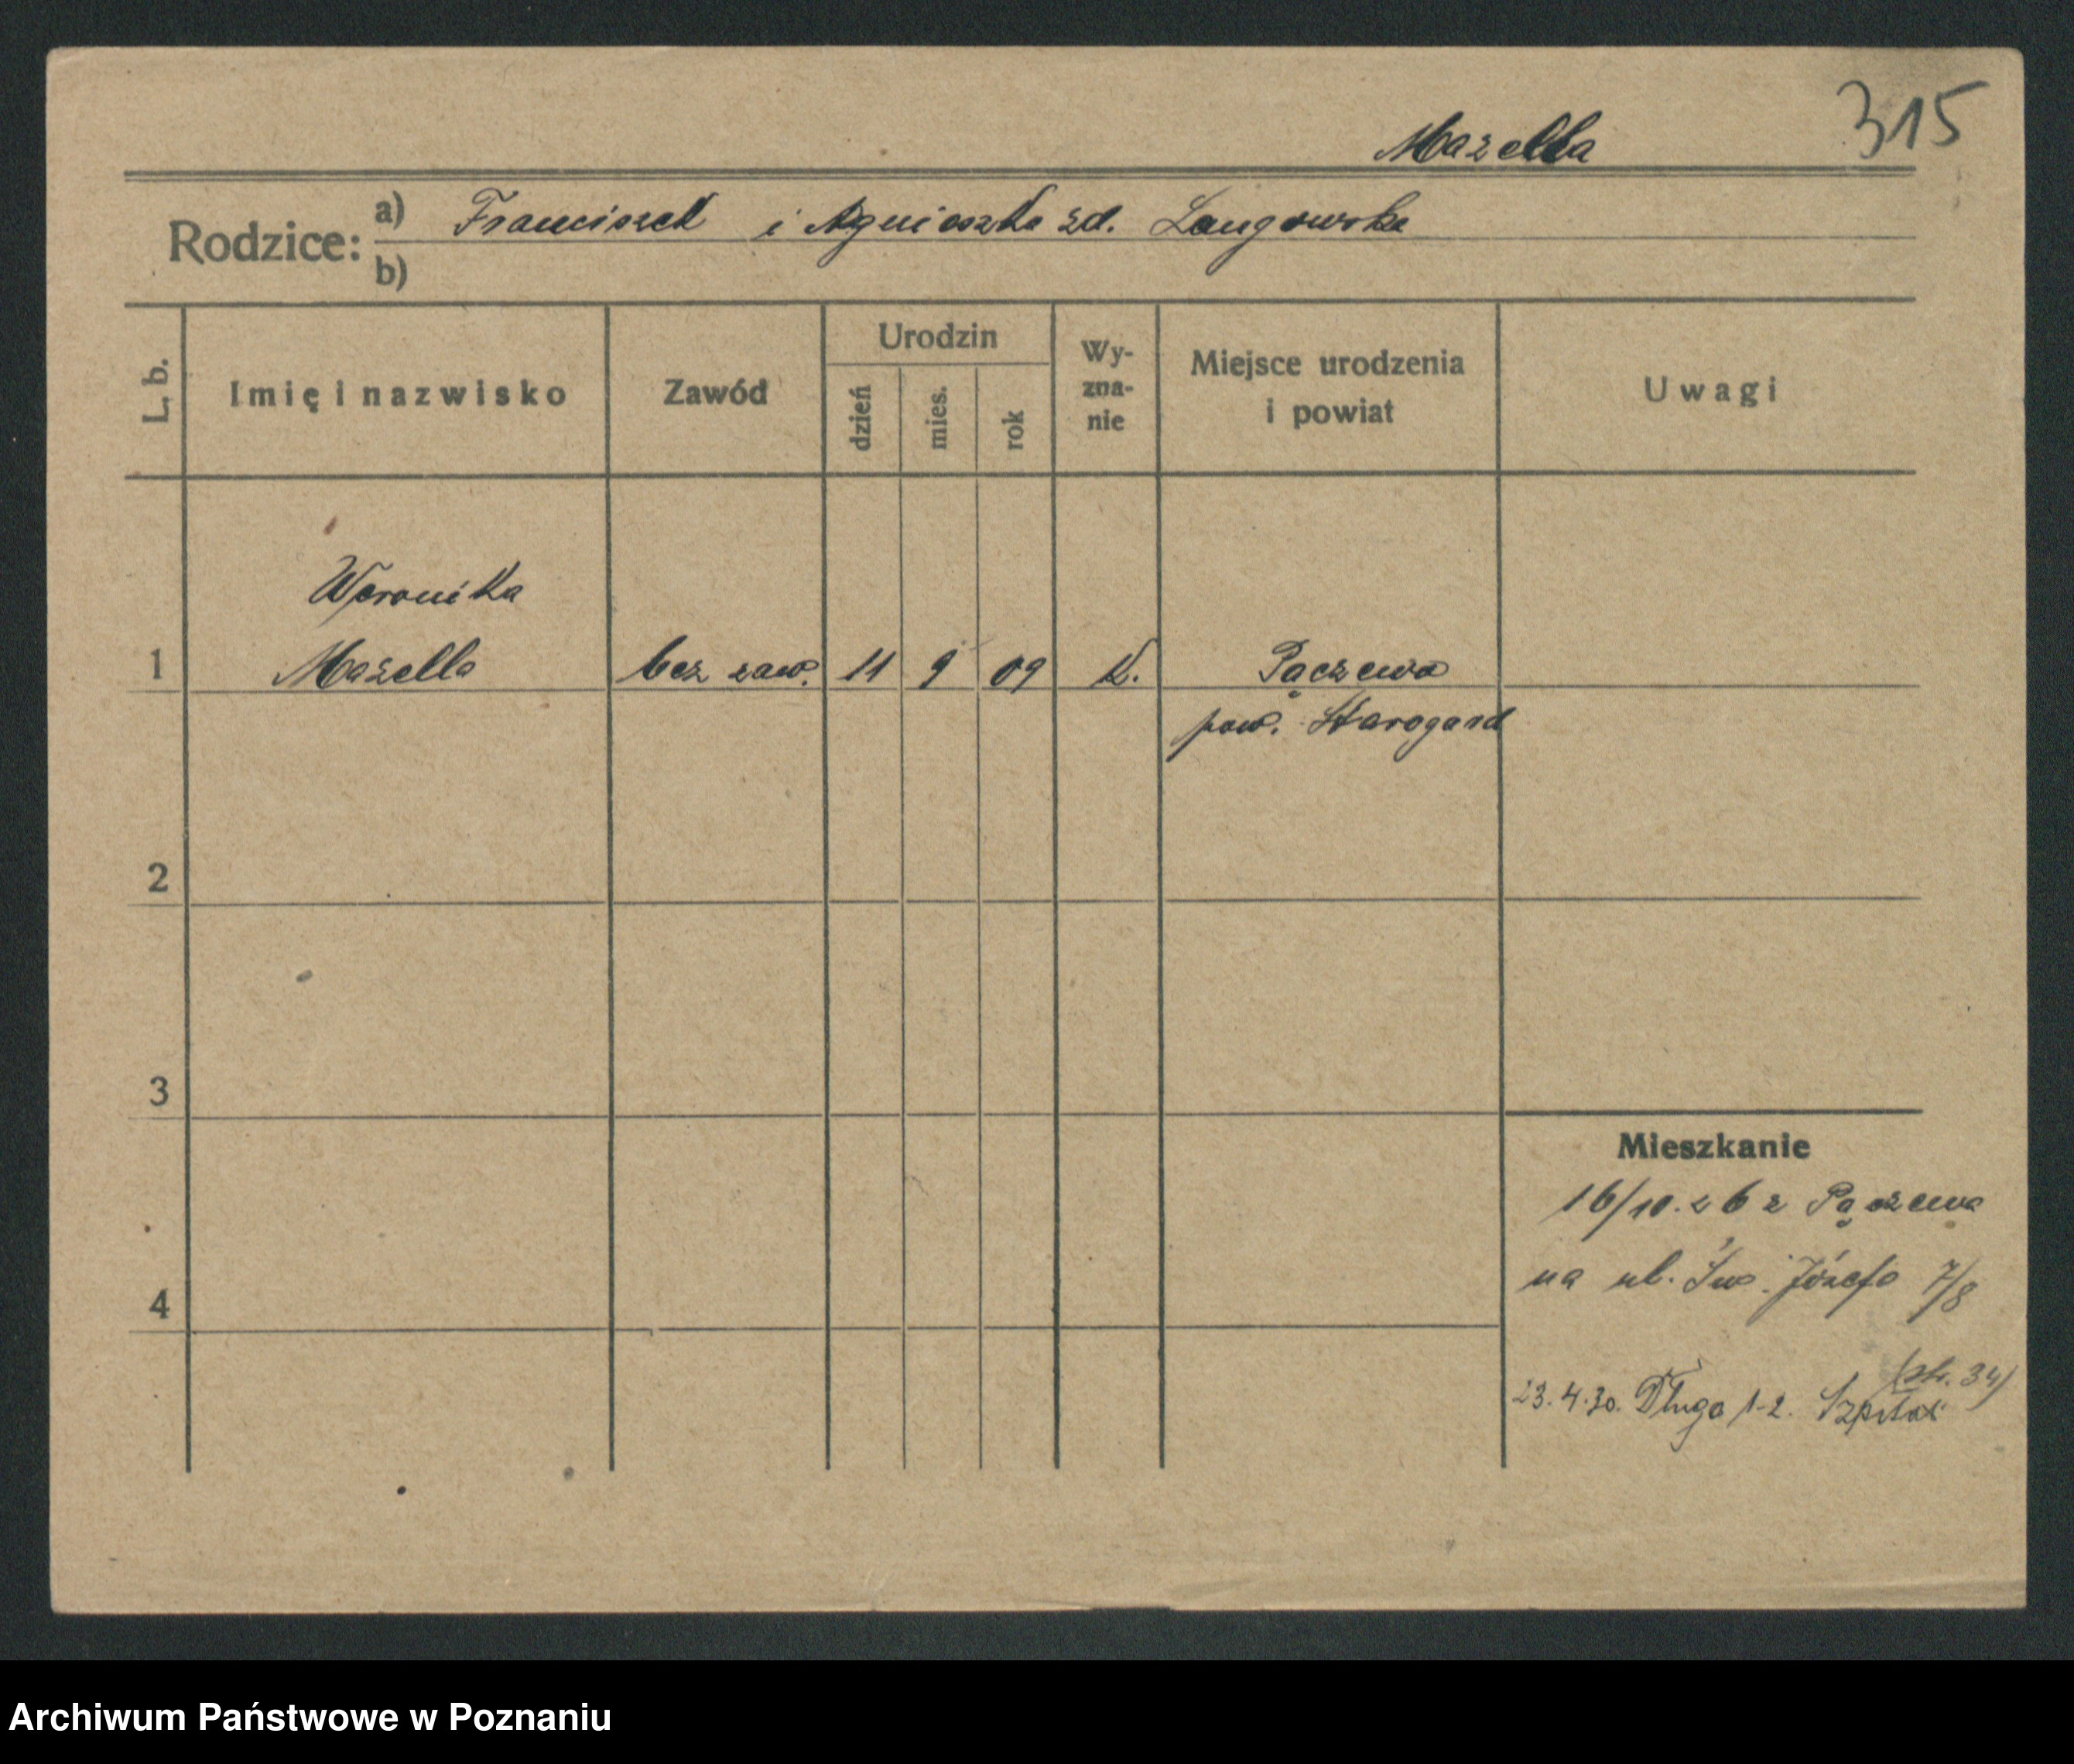 315
Mazella
Rodzice: a) Franciszek i Agnieszka zd. Langowska
b)
L. b. Imię i nazwisko Zawód Urodzin dzień mies. rok Wy-zna-nie Miejsce urodzenia i powiat Uwagi
Weronika
1 Mazella bez zaw. 11 9 09 K. Pączewo
pow. Starogard
2
3
Mieszkanie
16/10.26 z Pączewa
na ul. Św. Józefa 7/8
4
(str. 34)
23.4.30. Długa 1-2. Szpital
Archiwum Państwowe w Poznaniu